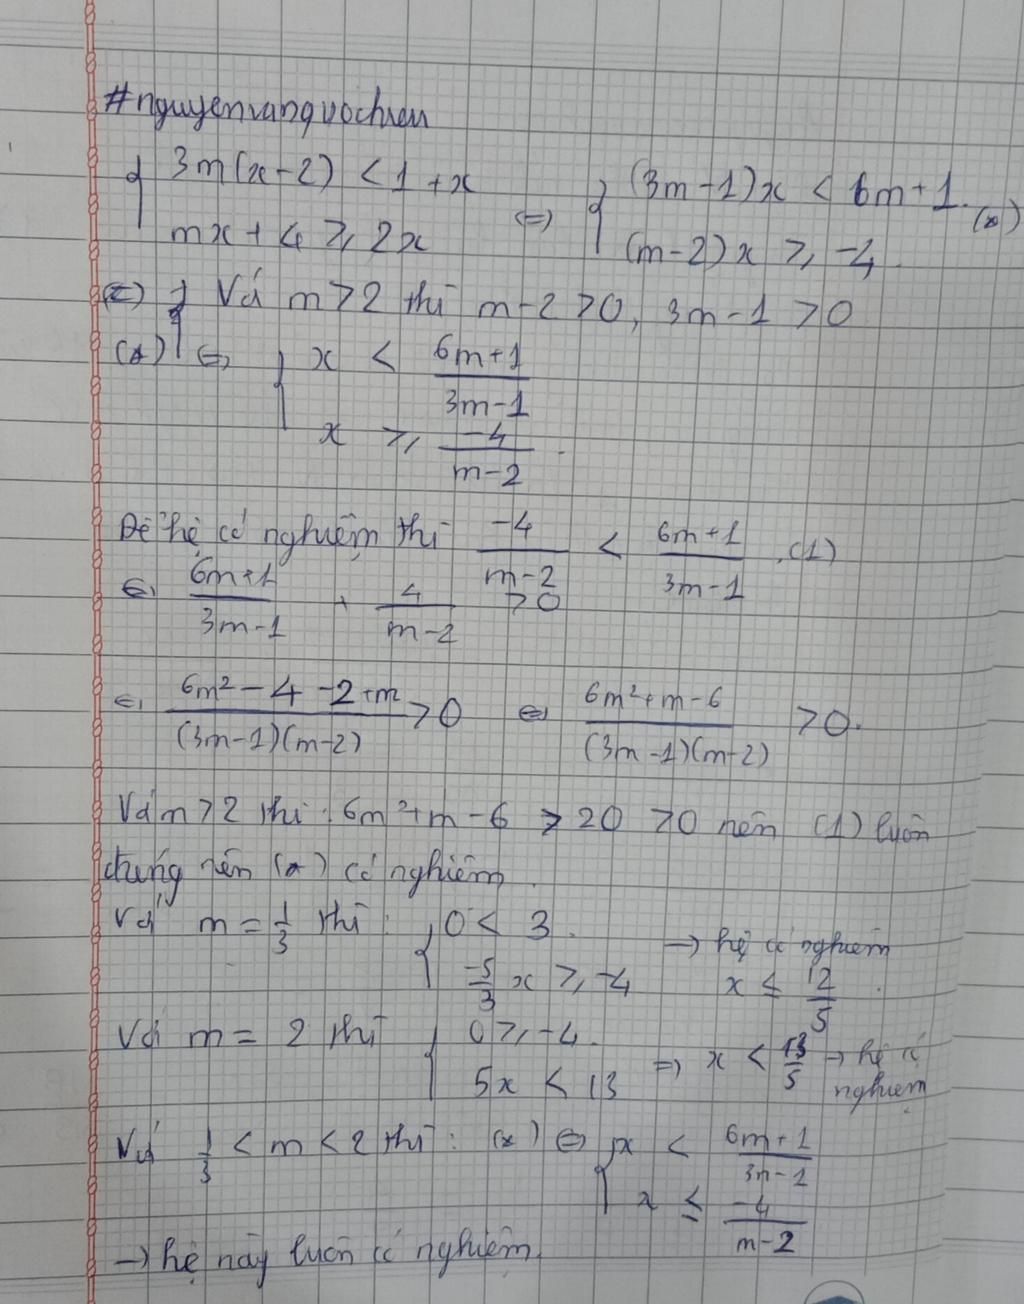 #nguyenvanquochieu
{ 3m(x-2) < 1 + x ⇔ { (3m-1)x < 6m+1. (*)
{ mx + 4 ≥ 2x { (m-2)x ≥ -4
Với m > 2 thì m-2 > 0, 3m-1 > 0
(*) ⇔ { x < (6m+1)/(3m-1)
{ x ≥ -4/(m-2).
Để hệ có nghiệm thì -4/(m-2) < (6m+1)/(3m-1). (1)
⇔ (6m+1)/(3m-1) + 4/(m-2) > 0
⇔ (6m²-4-2+m)/((3m-1)(m-2)) > 0 ⇔ (6m²+m-6)/((3m-1)(m-2)) > 0.
Với m > 2 thì: 6m²+m-6 > 20 > 0 nên (1) luôn
đúng nên (*) có nghiệm.
Với m = 1/3 thì: { 0 < 3. → hệ có nghiệm
{ -5/3 x ≥ -4 x ≤ 12/5.
Với m = 2 thì { 0 ≥ -4. ⇒ x < 13/5 → hệ có
{ 5x < 13 nghiệm
Với 1/3 < m < 2 thì: (*) ⇔ { x < (6m+1)/(3m-1)
{ x ≤ -4/(m-2)
→ hệ này luôn có nghiệm.